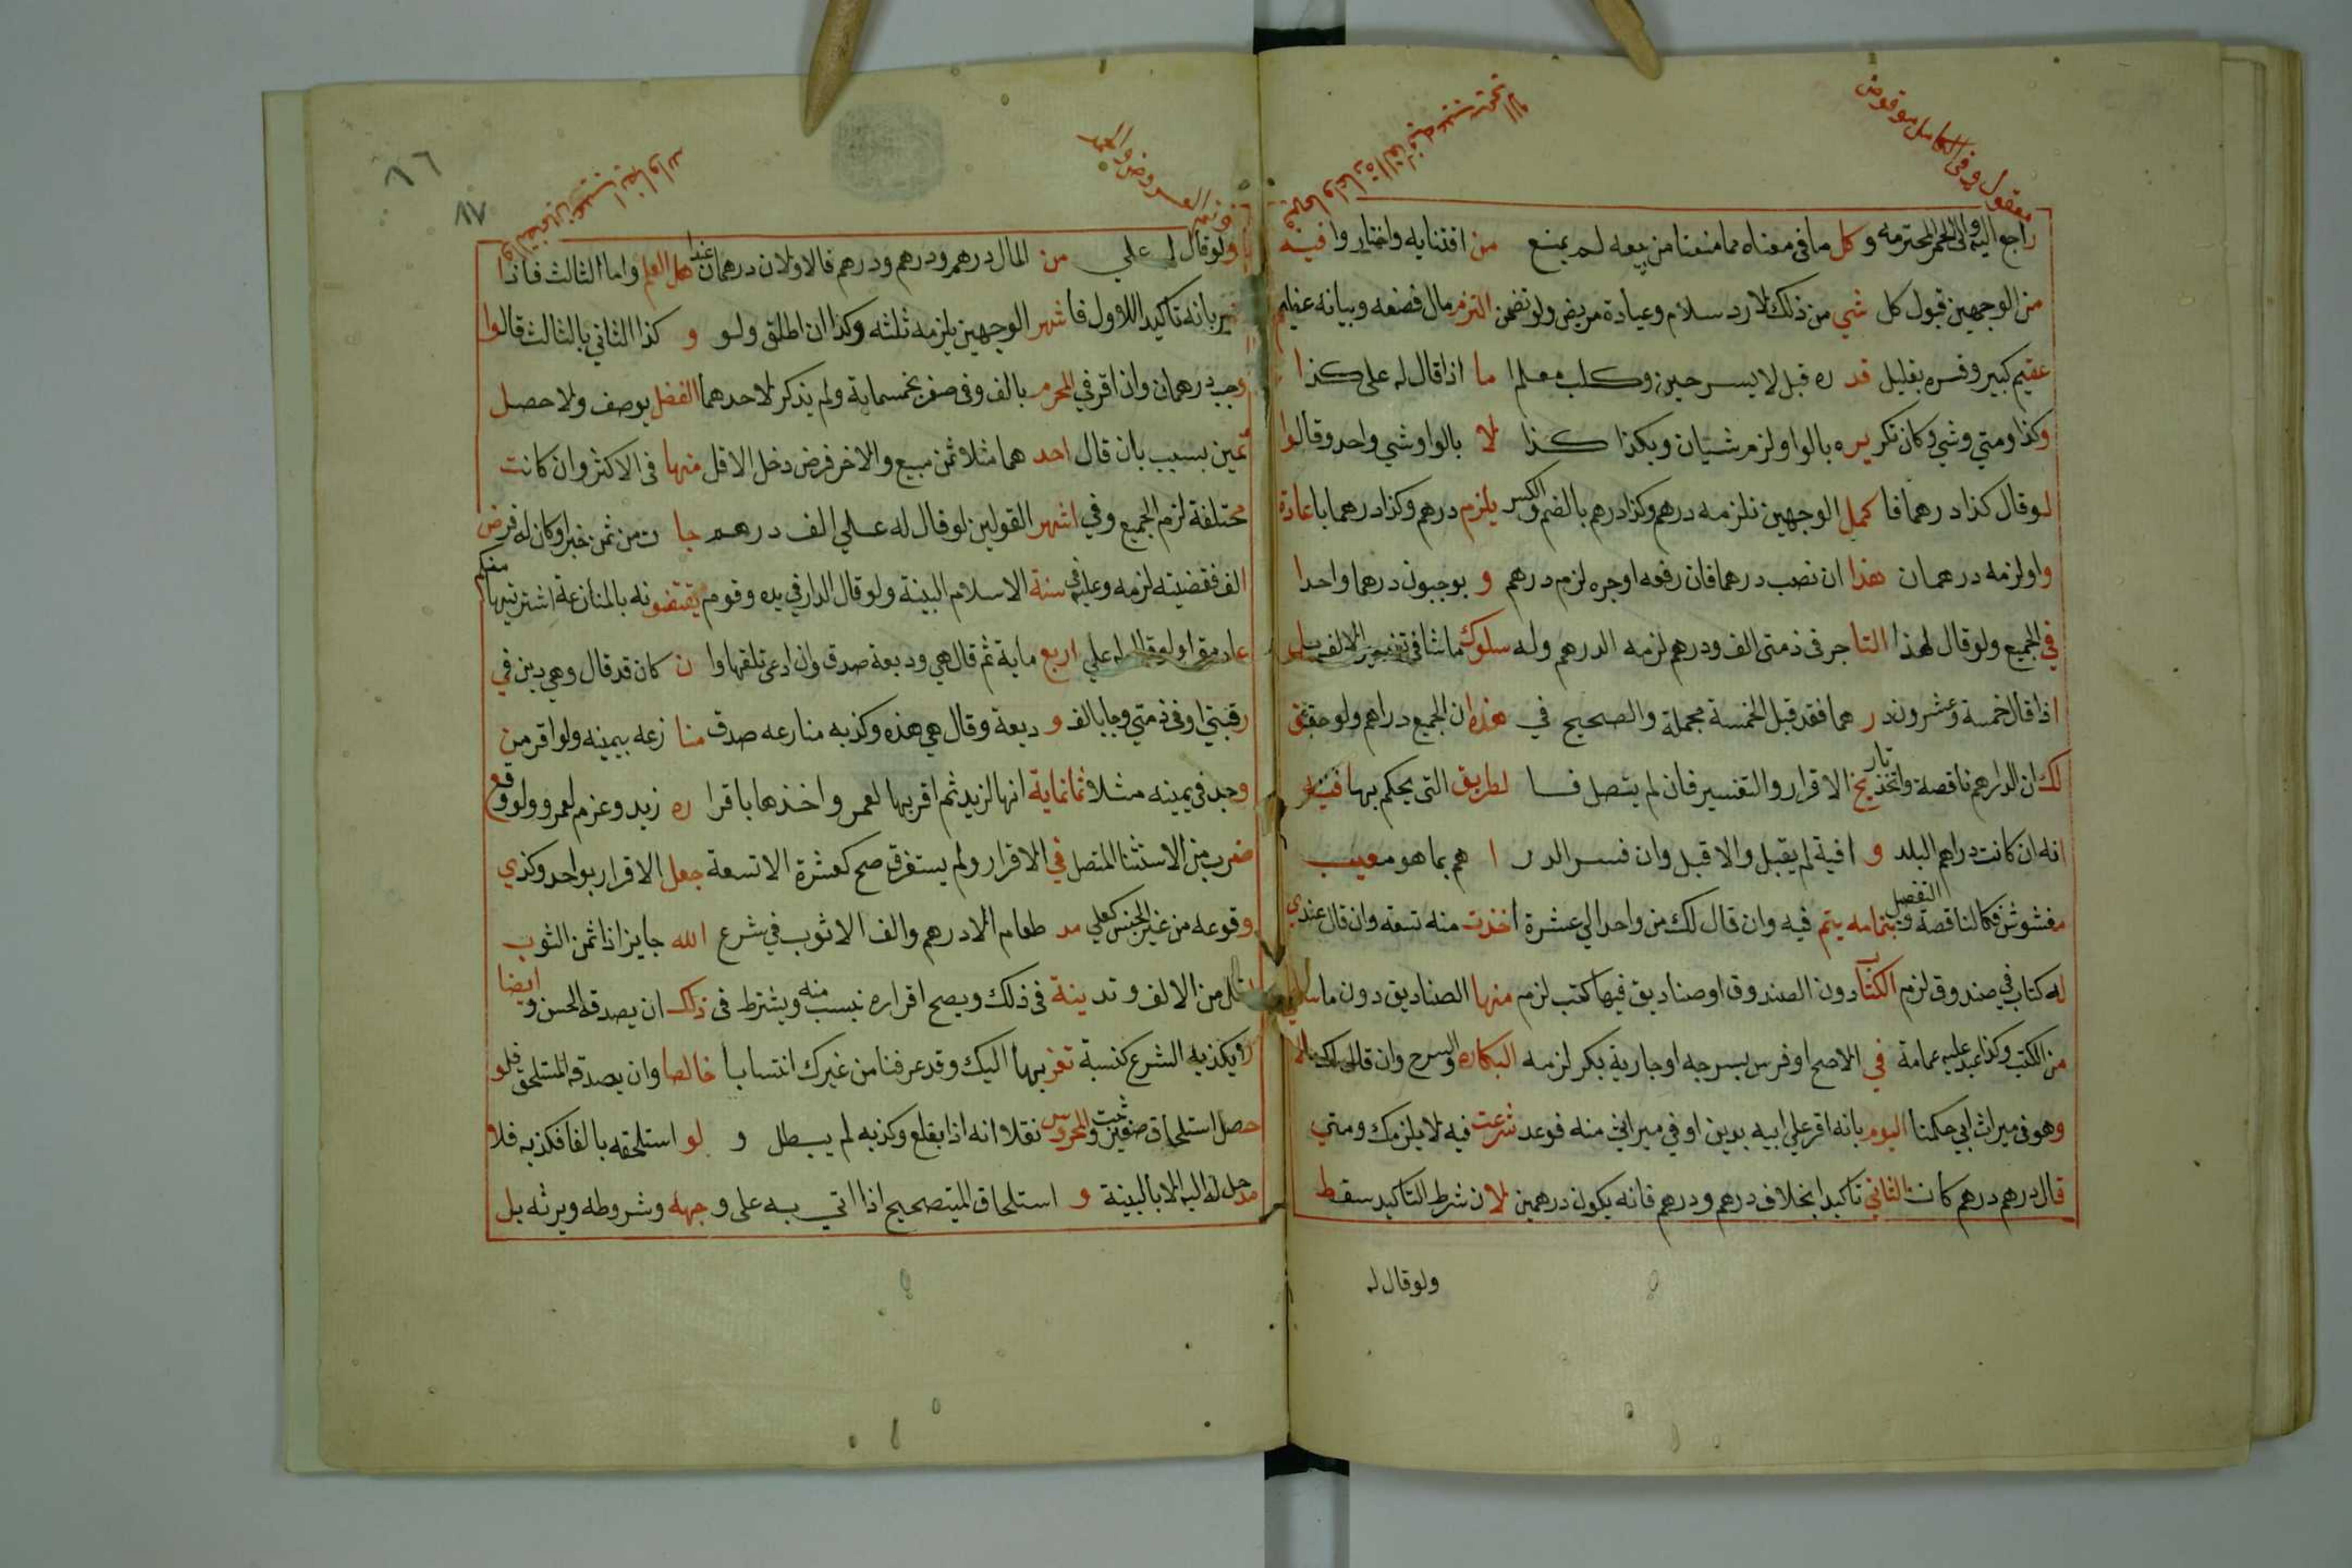 معقول وفي الكامل مو قوض
راجع اليه والي الخمر المحترمه وكل ما في معناه مما منعنا من بيعه لم يمنع من اقتنايه واختار وا فيه
من الوجهين قبول كل شي من ذلك لا رد سلام وعيادة مريض ولو تضمن التزم مال فضعه وبيانه عظيم
عقيم كبير وفسره بقليل قد ره قبل لا يسرجين وكلب معلم ا ما اذا قال له علي كذا
وكذا ومتي وشي وكان تكر يره بالواو لزم شيئان وبكذا كذا لا بالواو شي واحد وقالوا
لو قال كذا درهما فا كمل الوجهين نلزمه درهم وكذا درهم بالضم والكسر يلزم درهم وكذا درهما باعادة
واو لزمه درهمان هذا ان نصب درهما فان رفعه او جره لزم درهم و يوجبون درهما واحدا
في الجميع ولو قال لهذا التاجر في ذمتي الف ودرهم لزمه الدرهم وله سلوك ما شا في تفسير الالف
اذا قال خمسة وعشرون در هما فقد قبل الخمسة مجملة والصحيح في هذه ان الجميع دراهم ولو حقق
لك ان الدراهم ناقصة واتخذ تاريخ الاقرار والتفسير فان لم يتصل فا لطريق التي يحكم بها
انه ان كانت دراهم البلد و افية لم يقبل والا قبل وان فسر الدر ا هم بما هو معيب
مغشوش فكالناقصة والتفصيل بتمامه يتم فيه وان قال لك من واحد الي عشرة اخذت منه تسعه وان قال عندي
له كتاب في صندوق لزم الكتاب دون الصندوق او صناديق فيها كتب لزم منها الصناديق دون ما
من الكتب وكذا عبد عليه عمامة في الاصح او فرس بسرجه او جارية بكر لزمه البكاره والسرج وان قال لك
وهو في ميراث ابي حكمنا اليوم بانه اقر علي ابيه بدين او في ميراثي منه فوعد شرعت فيه لا يلزمك ومتي
قال درهم درهم كان الثاني تاكيدا بخلاف درهم ودرهم فانه يكون درهمين لان شرط التاكيد سقط
ولو قال له
٨٦
٨٧
ولو قال له علي من المال درهم ودرهم ودرهم فالاولان درهمان عند اهل العلم واما الثالث فاذا
بانه تاكيد اللاول فأ شهر الوجهين يلزمه ثلثه وكذا ان اطلق ولو و كذا الثاني بالثالث قالوا
وجب درهمان وان اقر في المحرم بالف وفي صفر بخمسماية ولم يذكر لاحدهما الفضل بوصف ولا حصل
تمين بسبب بان قال احد هما مثلا ثمن مبيع والاخر فرض دخل الاقل منها في الاكثر وان كانت
مختلفة لزم الجميع وفي اشهر القولين لو قال له علي الف درهم جا ت من ثمن خمر او كان له فرض
الف فقضيته لزمه وعليه في سنة الاسلام البينة ولو قال الدار في يده وقوم يقتضو نه بالمنازعة اشتريتها منكم
علي اربع ماية ثم قال هي وديعة صدق وان ادعي تلفها وا ن كان قد قال وهي دين في
رقبتي او في ذمتي وجا بالف و ديعة وقال هي هذه وكذبه منازعه صدق منا زعه بيمينه ولو اقر من
وجد في يمينه مثلا ثمانماية انها لزيد ثم اقر بها لعمر واخذها باقرا ره زيد وغرم لعمرو ولو وقع
ضرب من الاستثنا المتصل في الاقرار ولم يستغرق صح كعشرة الا تسعة جعل الاقرار بواحد وكذي
وقوعه من غير الجنس كعلي مد طعام الا درهم والف الا ثوب في شرع الله جايز اذا ثمن الثوب
اقل من الالف وتد ينة في ذلك ويصح اقراره بنسب منه ويشترط في ذلك ان يصدقه الحس و ايضا
لا يكذبه الشرع كنسبة تغز بها اليك وقد عرفنا من غيرك انتسابا خالصا وان يصدقه المستلحق فلو
حصل استلحاق صغير ثبت والمحروس نقلا انه اذا بقلع وكذبه لم يبطل و لو استلحقه بالغا فكذبه فلا
مدخل له اليه الا بالبينة و استلحاق الميت صحيح اذا اتي به علي و جهه وشروطه ويرثه بل